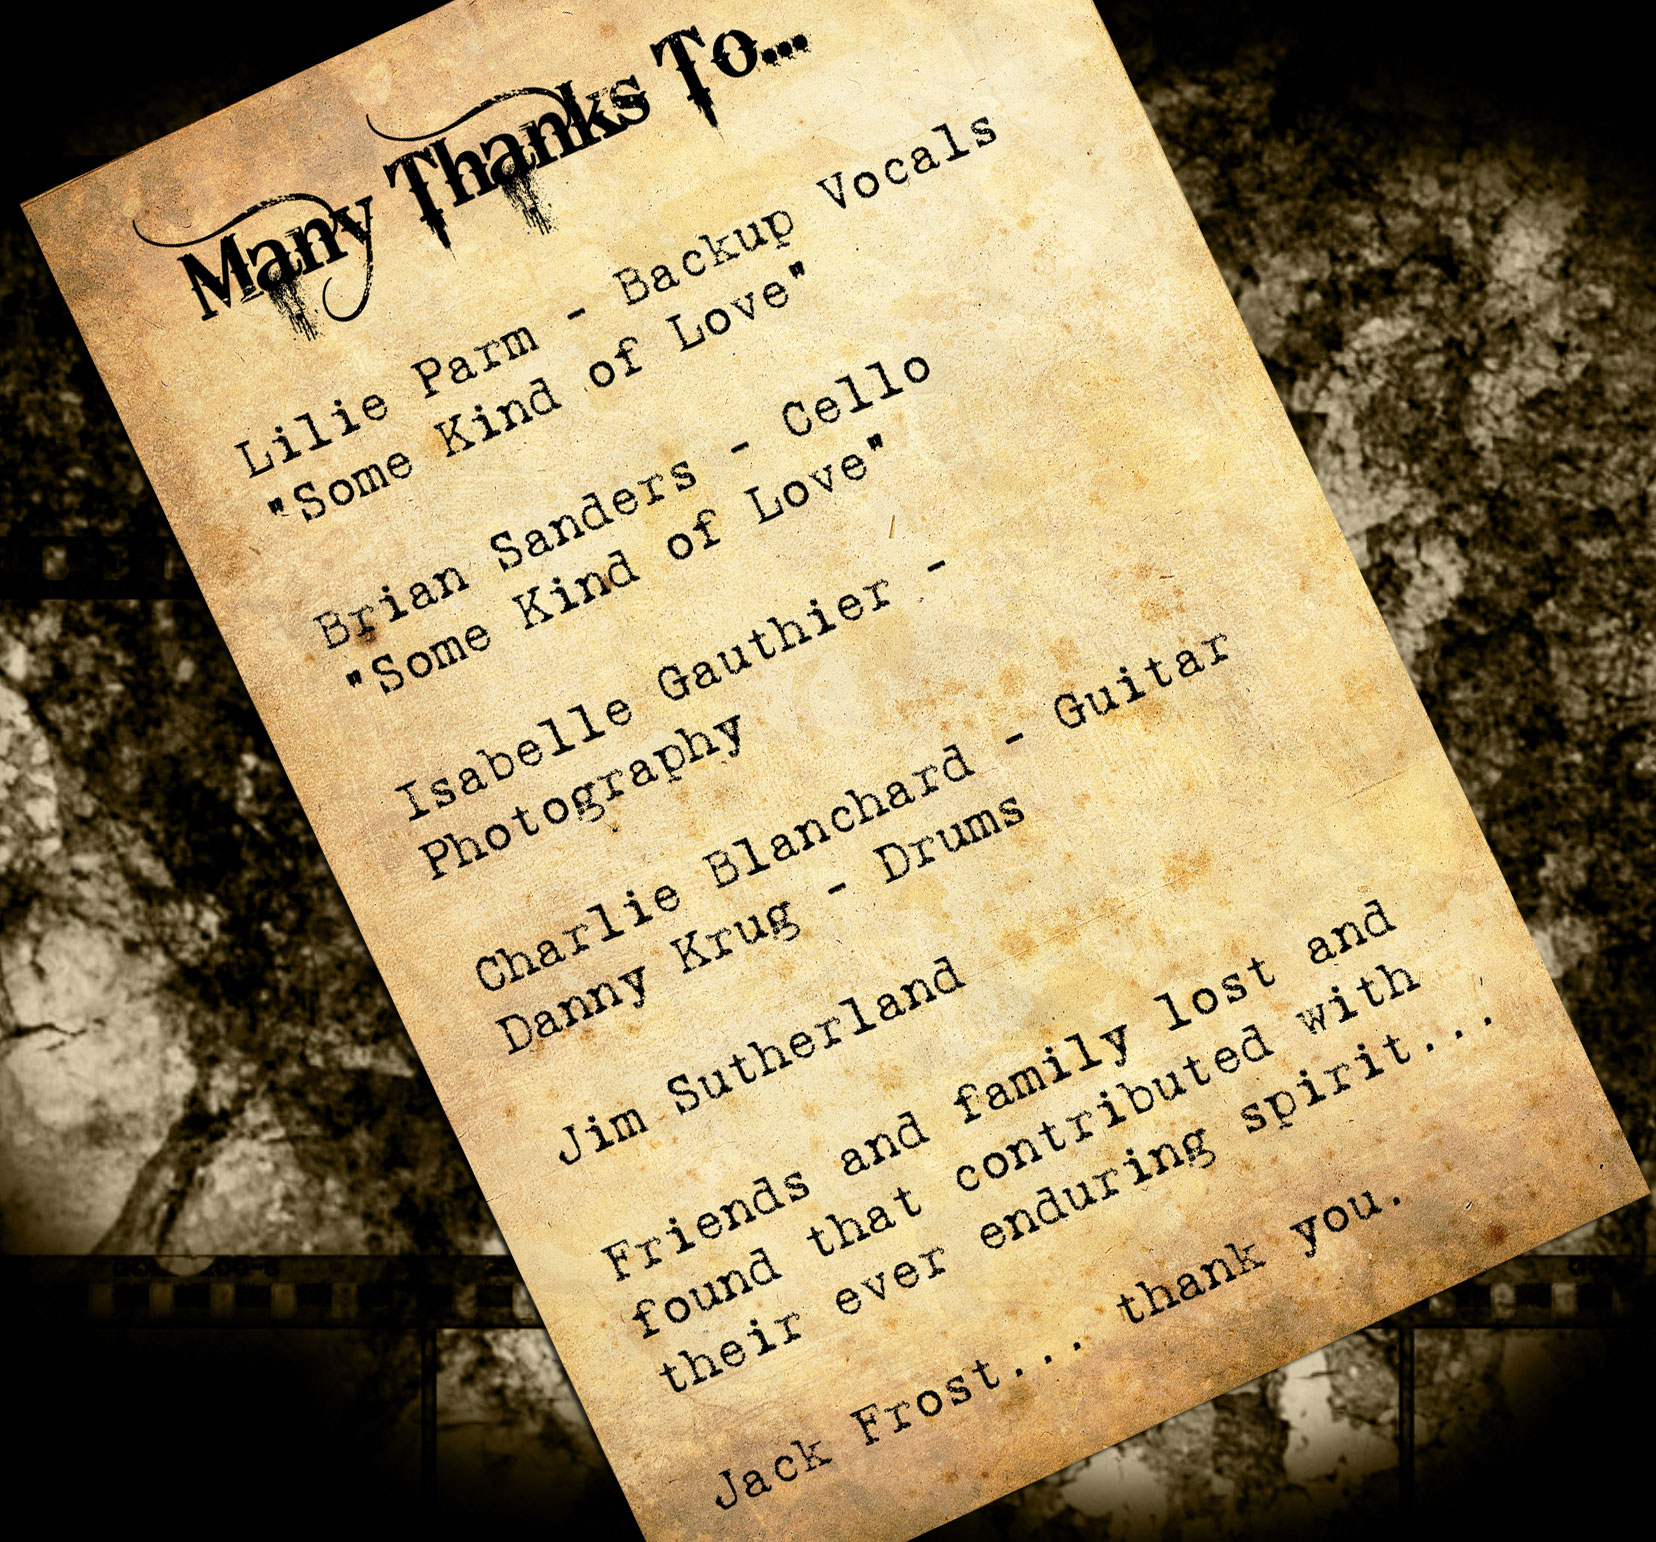 Many Thanks To...
Lilie Parm - Backup Vocals
"Some Kind of Love"
Brian Sanders - Cello
"Some Kind of Love"
Isabelle Gauthier -
Photography
Charlie Blanchard - Guitar
Danny Krug - Drums
Jim Sutherland
Friends and family lost and
found that contributed with
their ever enduring spirit...
Jack Frost... thank you.